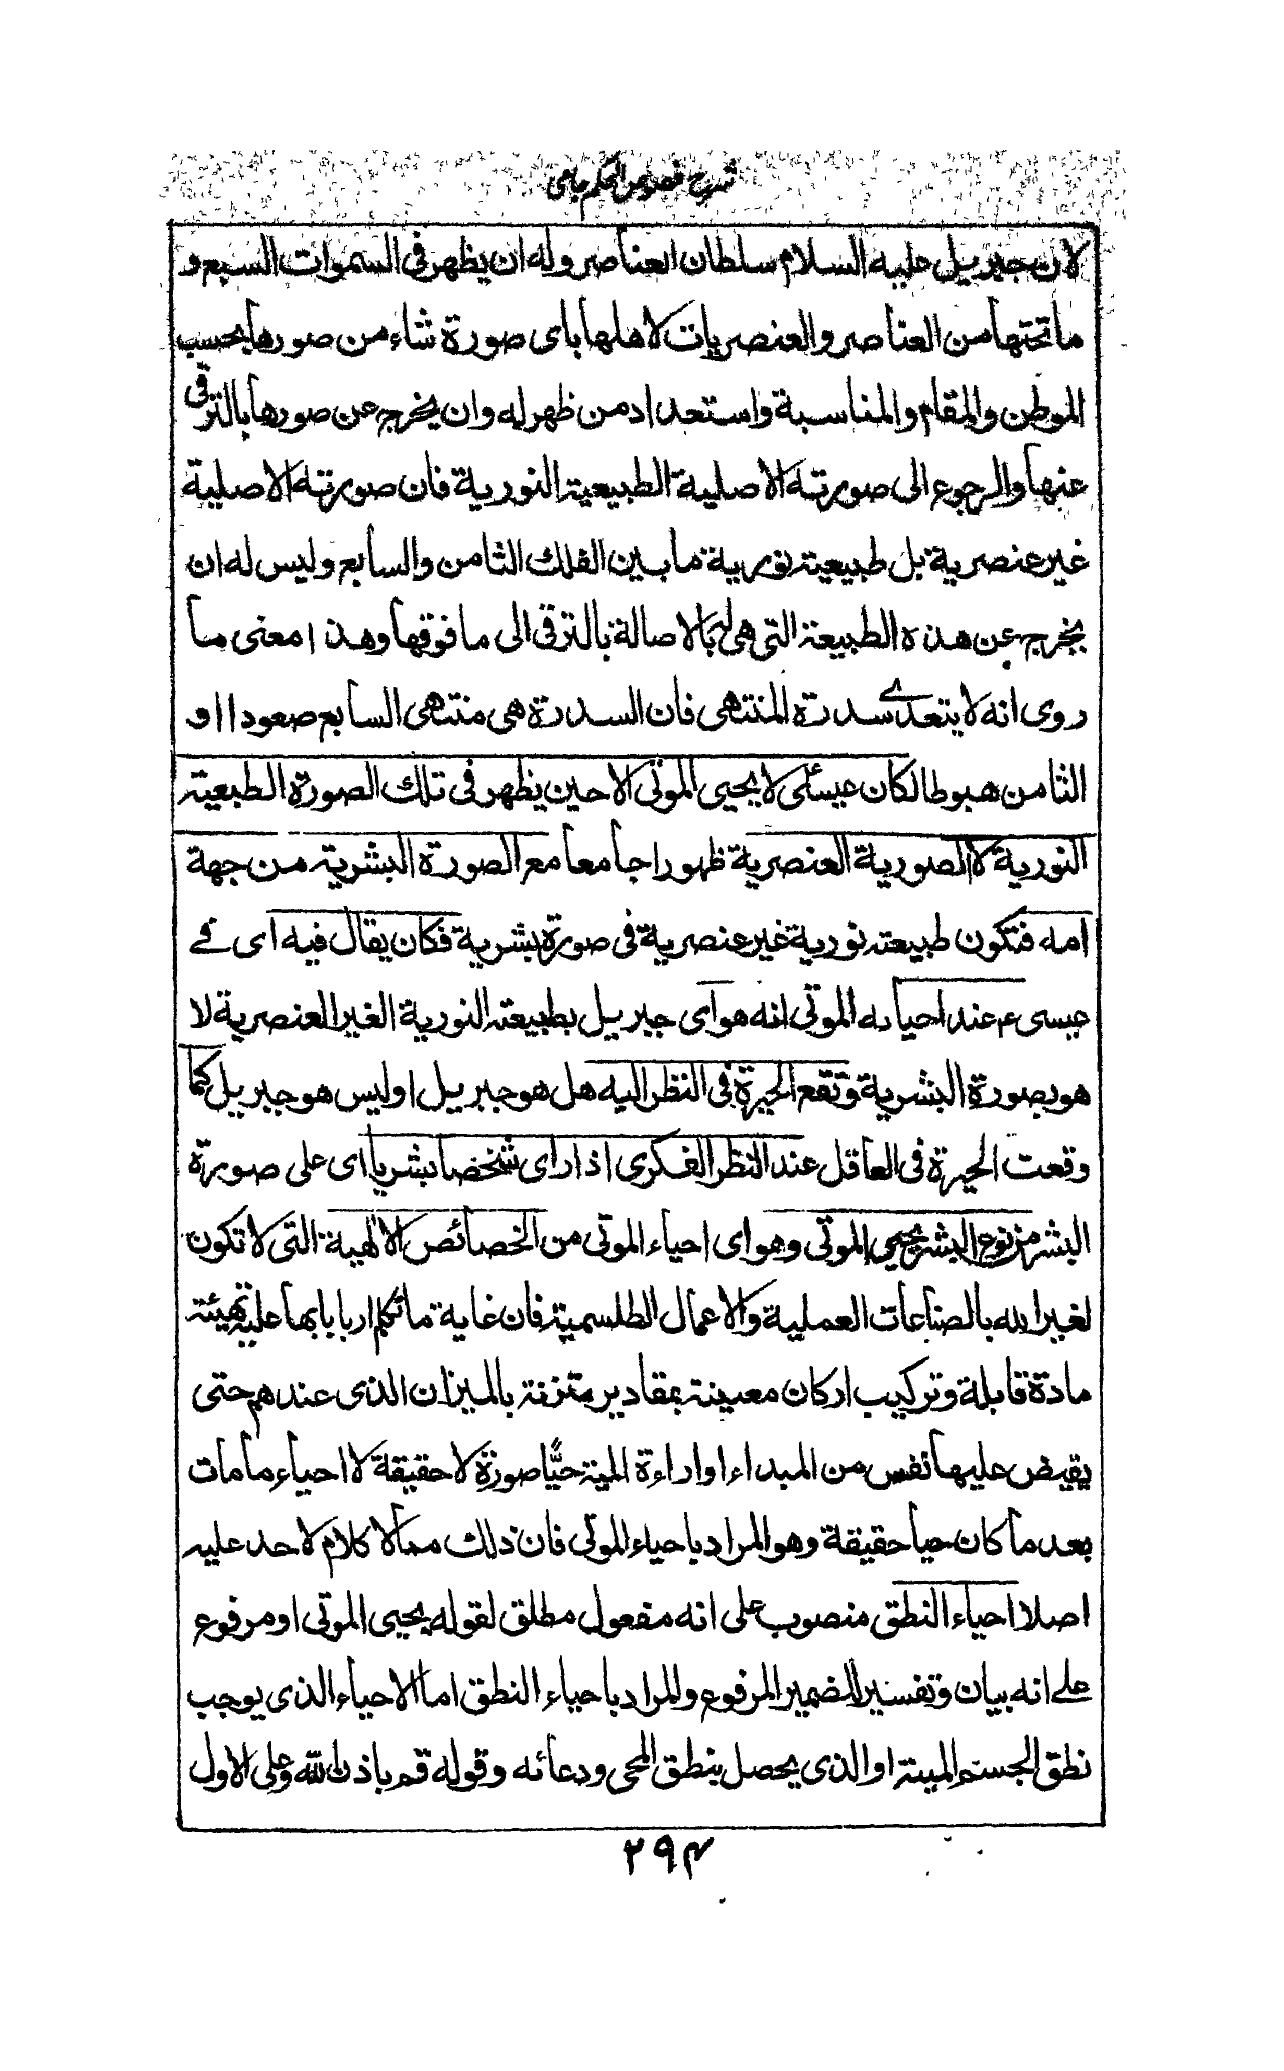 شرح فصوص الحكم جامى
لان جبريل عليه السلام سلطان العناصر وله ان يظهر فى السموات السبع و
ما تحتها من العناصر والعنصريات لاهلها باى صورة شاء من صورها بحسب
الموطن والمقام والمناسبة واستعداد من ظهر له وان يخرج عن صورها بالترقى
عنها والرجوع الى صورته الاصلية الطبيعية النورية فان صورته الاصلية
غير عنصرية بل طبيعية نورية ما بين الفلك الثامن والسابع وليس له ان
يخرج عن هذه الطبيعة التى هى له بالاصالة بالترقى الى ما فوقها وهذا معنى ما
روى انه لا يتعدى سدرة المنتهى فان السدرة هى منتهى السابع صعودا او
الثامن هبوطا لكان عيسى لا يحيى الموتى الا حين يظهر فى تلك الصورة الطبيعية
النورية لا الصورية العنصرية ظهورا جامعا مع الصورة البشرية من جهة
امه فتكون طبيعته نورية غير عنصرية فى صورة بشرية فكان يقال فيه اى فى
عيسى ع عند احيائه الموتى انه هو اى جبريل بطبيعته النورية الغير العنصرية لا
هو بصورة البشرية وتقع الحيرة فى النظر اليه هل هو جبريل او ليس هو جبريل كما
وقعت الحيرة فى العاقل عند النظر الفكرى اذا راى شخصا بشريا اى على صورة
البشر من نوع البشر يحيى الموتى وهو اى احياء الموتى من الخصائص الالهية التى لا تكون
لغير الله بالصناعات العملية والاعمال الطلسمية فان غاية ما تكلم اربابابها عليه تهيئة
مادة قابلة وتركيب اركان معينة بمقادير متزنة بالميزان الذى عندهم حتى
يفيض عليها نفس من المبداء او اراءة الميتة حيًّا صورة لا حقيقة لا احياء ما مات
بعد ما كان حيا حقيقة وهو المراد باحياء الموتى فان ذلك مما لا كلام لاحد عليه
اصلا احياء النطق منصوب على انه مفعول مطلق لقوله يحيى الموتى او مرفوع
على انه بيان وتفسير للضمير المرفوع والمراد باحياء النطق اما الاحياء الذى يوجب
نطق الجسم الميتة او الذى يحصل بنطق المحى ودعائه وقوله قم باذن الله وعلى الاول
٢٩٤